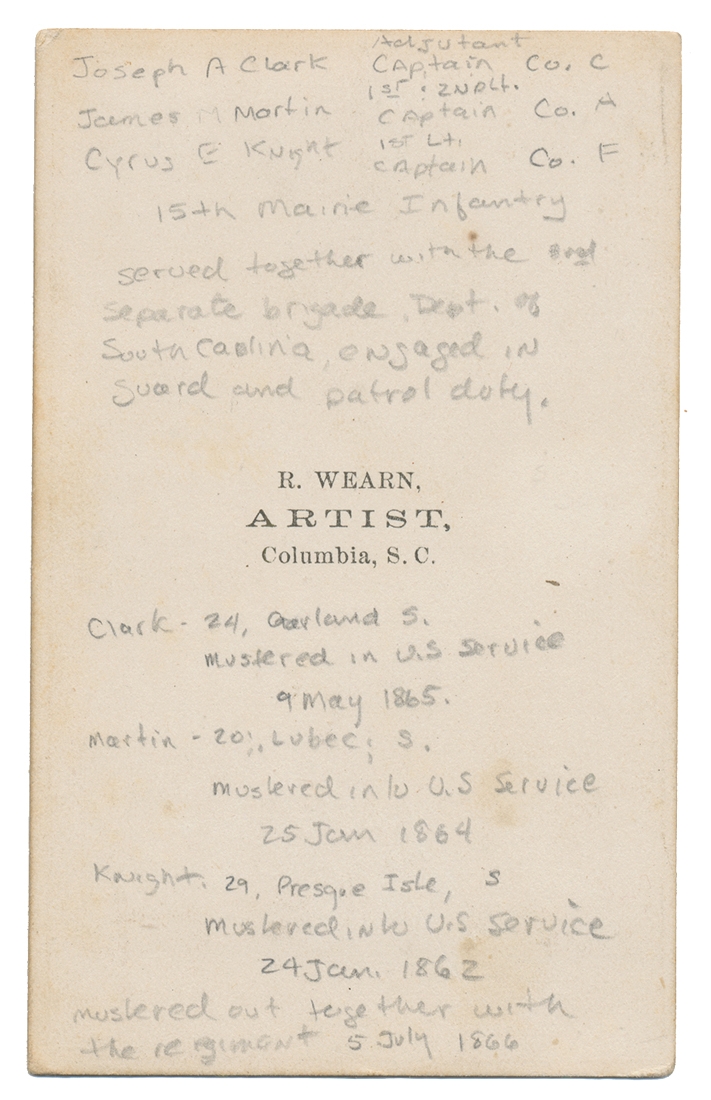 Adjutant
Joseph A Clark Captain Co. C
1st · 2nd Lt.
James M Martin Captain Co. A
1st Lt.
Cyrus E Knight Captain Co. F
15th Maine Infantry
served together with the
separate brigade, Dept. of
South Caolina, engaged in
guard and patrol duty.
R. WEARN,
ARTIST,
Columbia, S. C.
Clark - 24, Garland S.
mustered in U.S Service
9 May 1865.
Martin - 20, Lubec; S.
mustered into U.S Service
25 Jan 1864
Knight. 29, Presque Isle, S
Mustered into U.S Service
24 Jan. 1862
mustered out together with
the regiment 5 July 1866